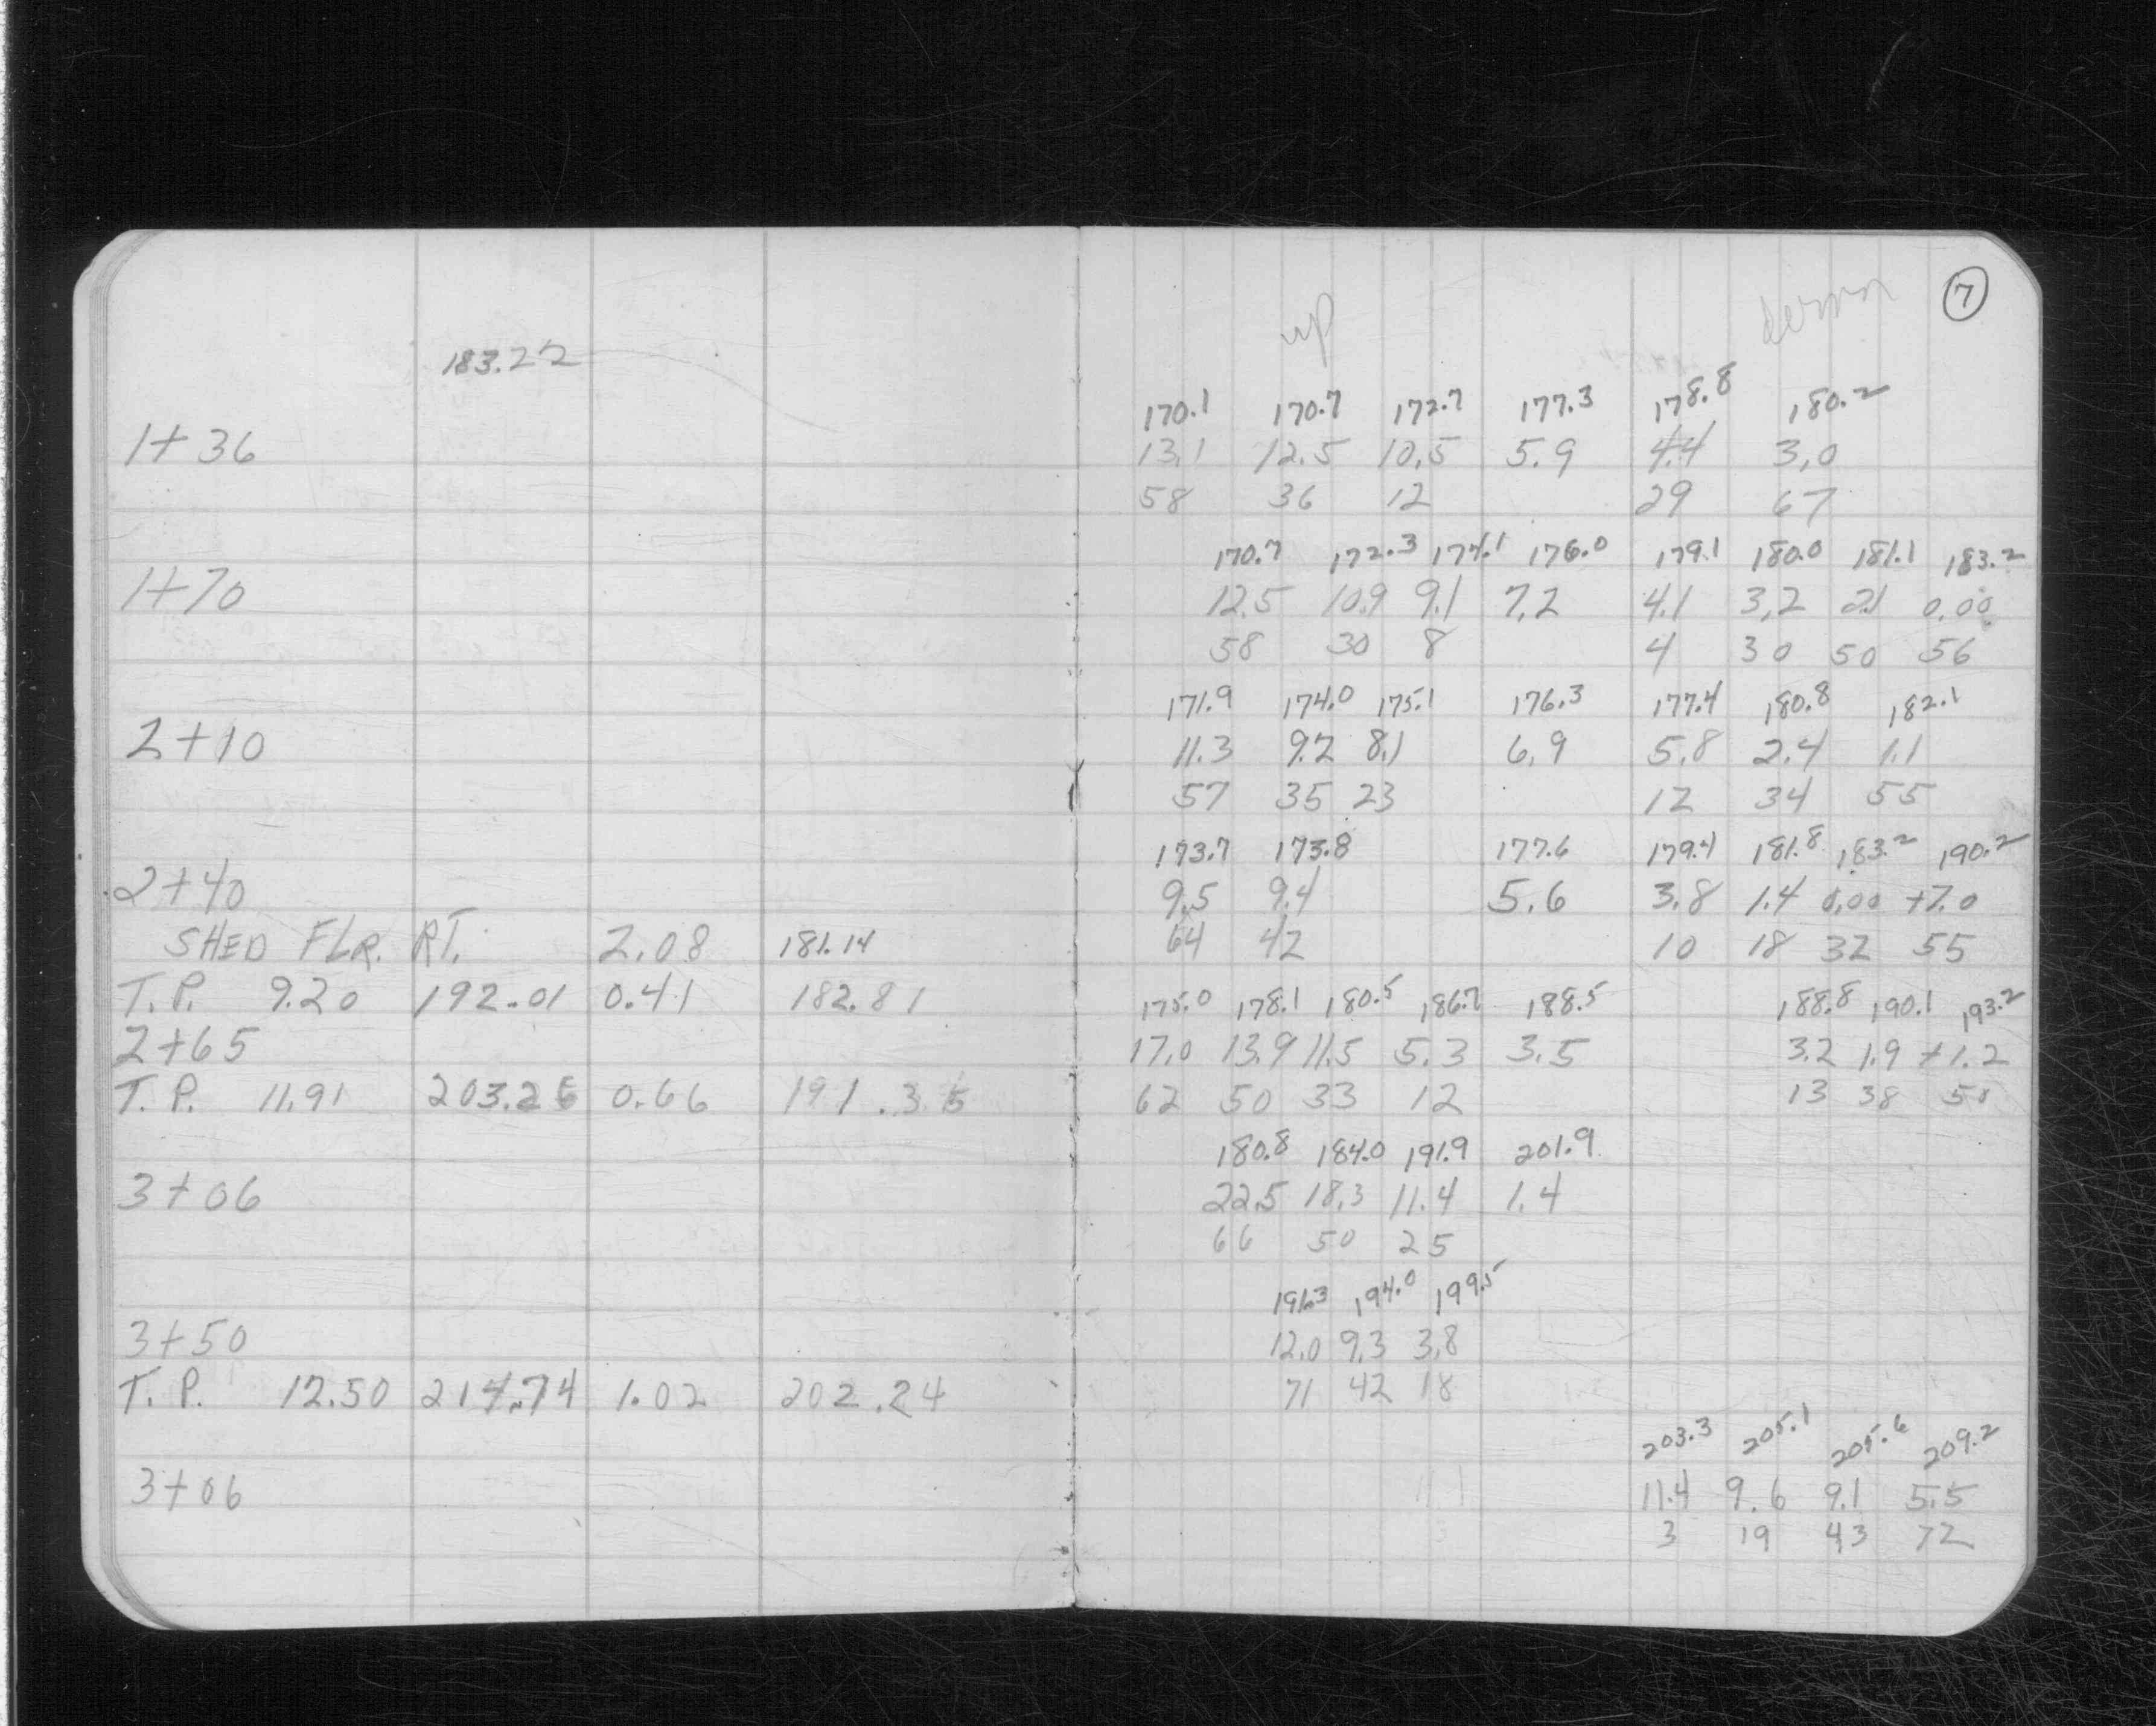 7
up down
183.22
170.1 170.7 172.7 177.3 178.8 180.2
1+36 13.1 12.5 10.5 5.9 4.4 3.0
58 36 12 29 67
170.7 172.3 174.1 176.0 179.1 180.0 181.1 183.2
1+70 12.5 10.9 9.1 7.2 4.1 3.2 2.1 0.00
58 30 8 4 30 50 56
171.9 174.0 175.1 176.3 177.4 180.8 182.1
2+10 11.3 9.2 8.1 6.9 5.8 2.4 1.1
57 35 23 12 34 55
173.7 173.8 177.6 179.4 181.8 183.2 190.2
2+40 9.5 9.4 5.6 3.8 1.4 0.00 +7.0
SHED FLR. RT. 2.08 181.14 64 42 10 18 32 55
T.P. 9.20 192.01 0.41 182.81 175.0 178.1 180.5 186.7 188.5 188.8 190.1 193.2
2+65 17.0 13.9 11.5 5.3 3.5 3.2 1.9 +1.2
T.P. 11.91 203.26 0.66 191.35 62 50 33 12 13 38 50
180.8 184.0 191.9 201.9
3+06 22.5 18.3 11.4 1.4
66 50 25
191.3 194.0 199.5
3+50 12.0 9.3 3.8
T.P. 12.50 214.74 1.02 202.24 71 42 18
203.3 205.1 205.6 209.2
3+06 11.4 9.6 9.1 5.5
3 19 43 72